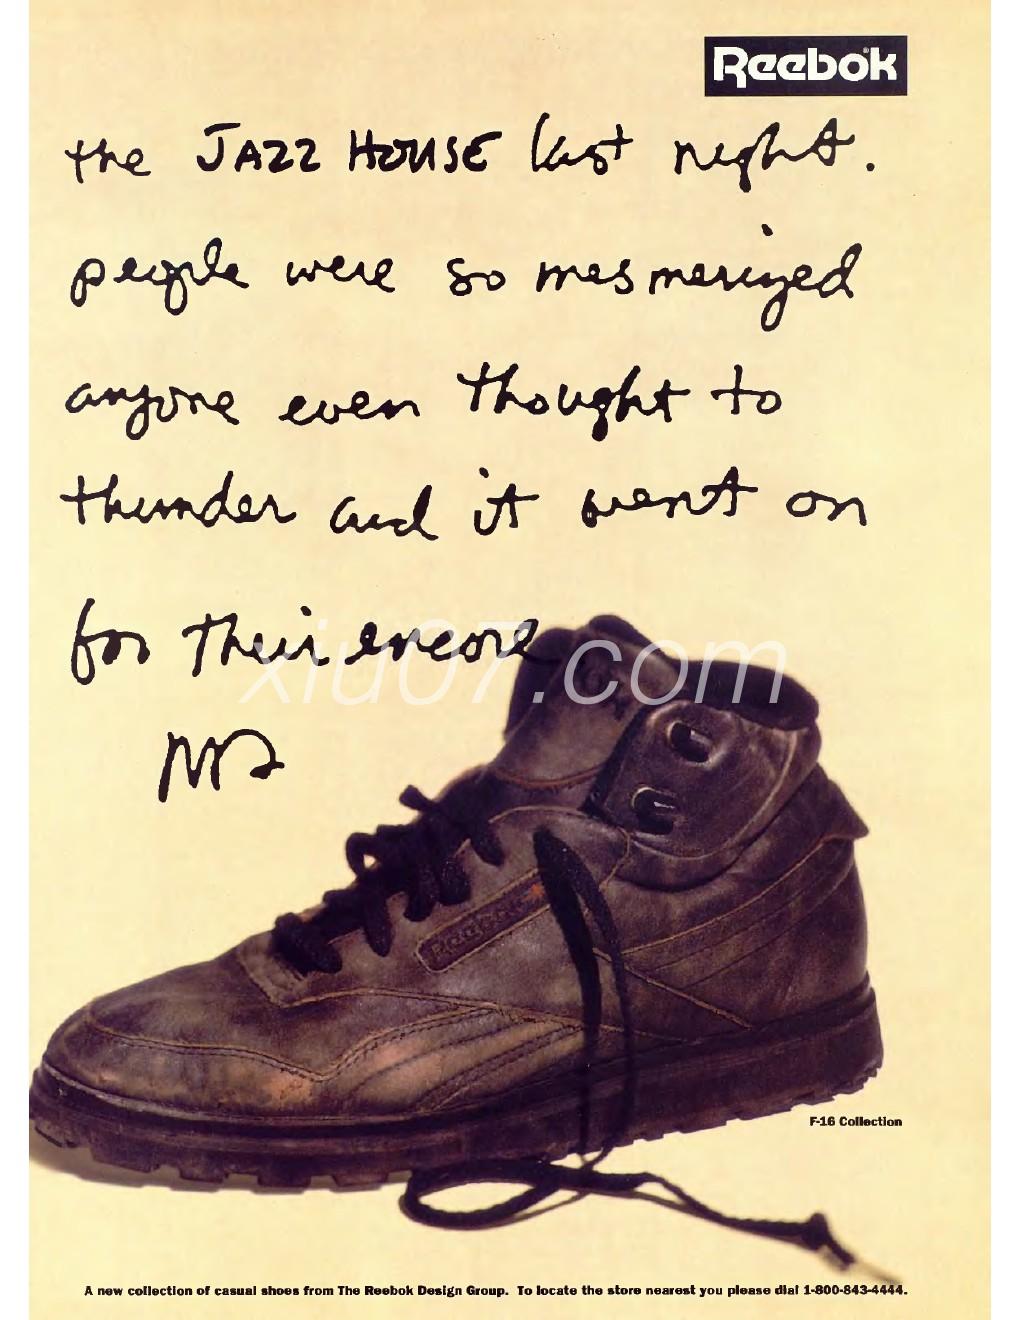 Reebok
the JAZZ HOUSE last night.
people were so mesmerized
anyone even thought to
thunder and it went on
for their encore
xiu07.com
Reebok
F-16 Collection
A new collection of casual shoes from The Reebok Design Group. To locate the store nearest you please dial 1-800-843-4444.